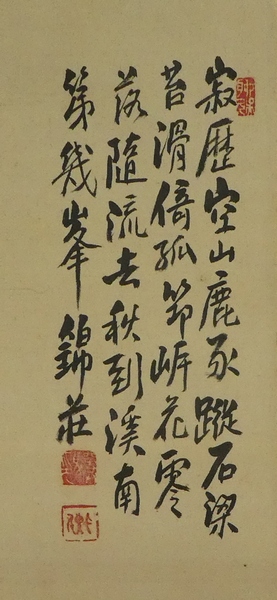 寂歷空山鹿豕蹤石梁
苔滑倚孤筇岸花零
落隨流去秋到溪南
第幾峯 伯錦莊